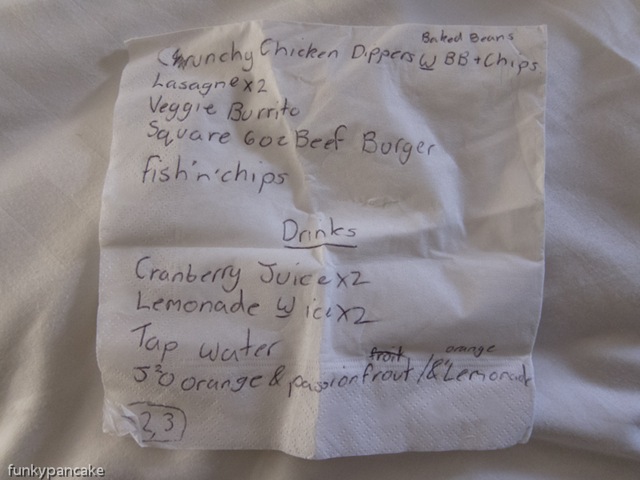 Baked Beans
Chrunchy Chicken Dippers W BB + Chips
Lasagne x2
Veggie Burrito
Square 6oz Beef Burger
fish'n'chips
Drinks
Cranberry Juice x2
Lemonade W ice x2
Tap water
froit orange
J²O orange & passionfrout / & Lemonade
2,3
funkypancake